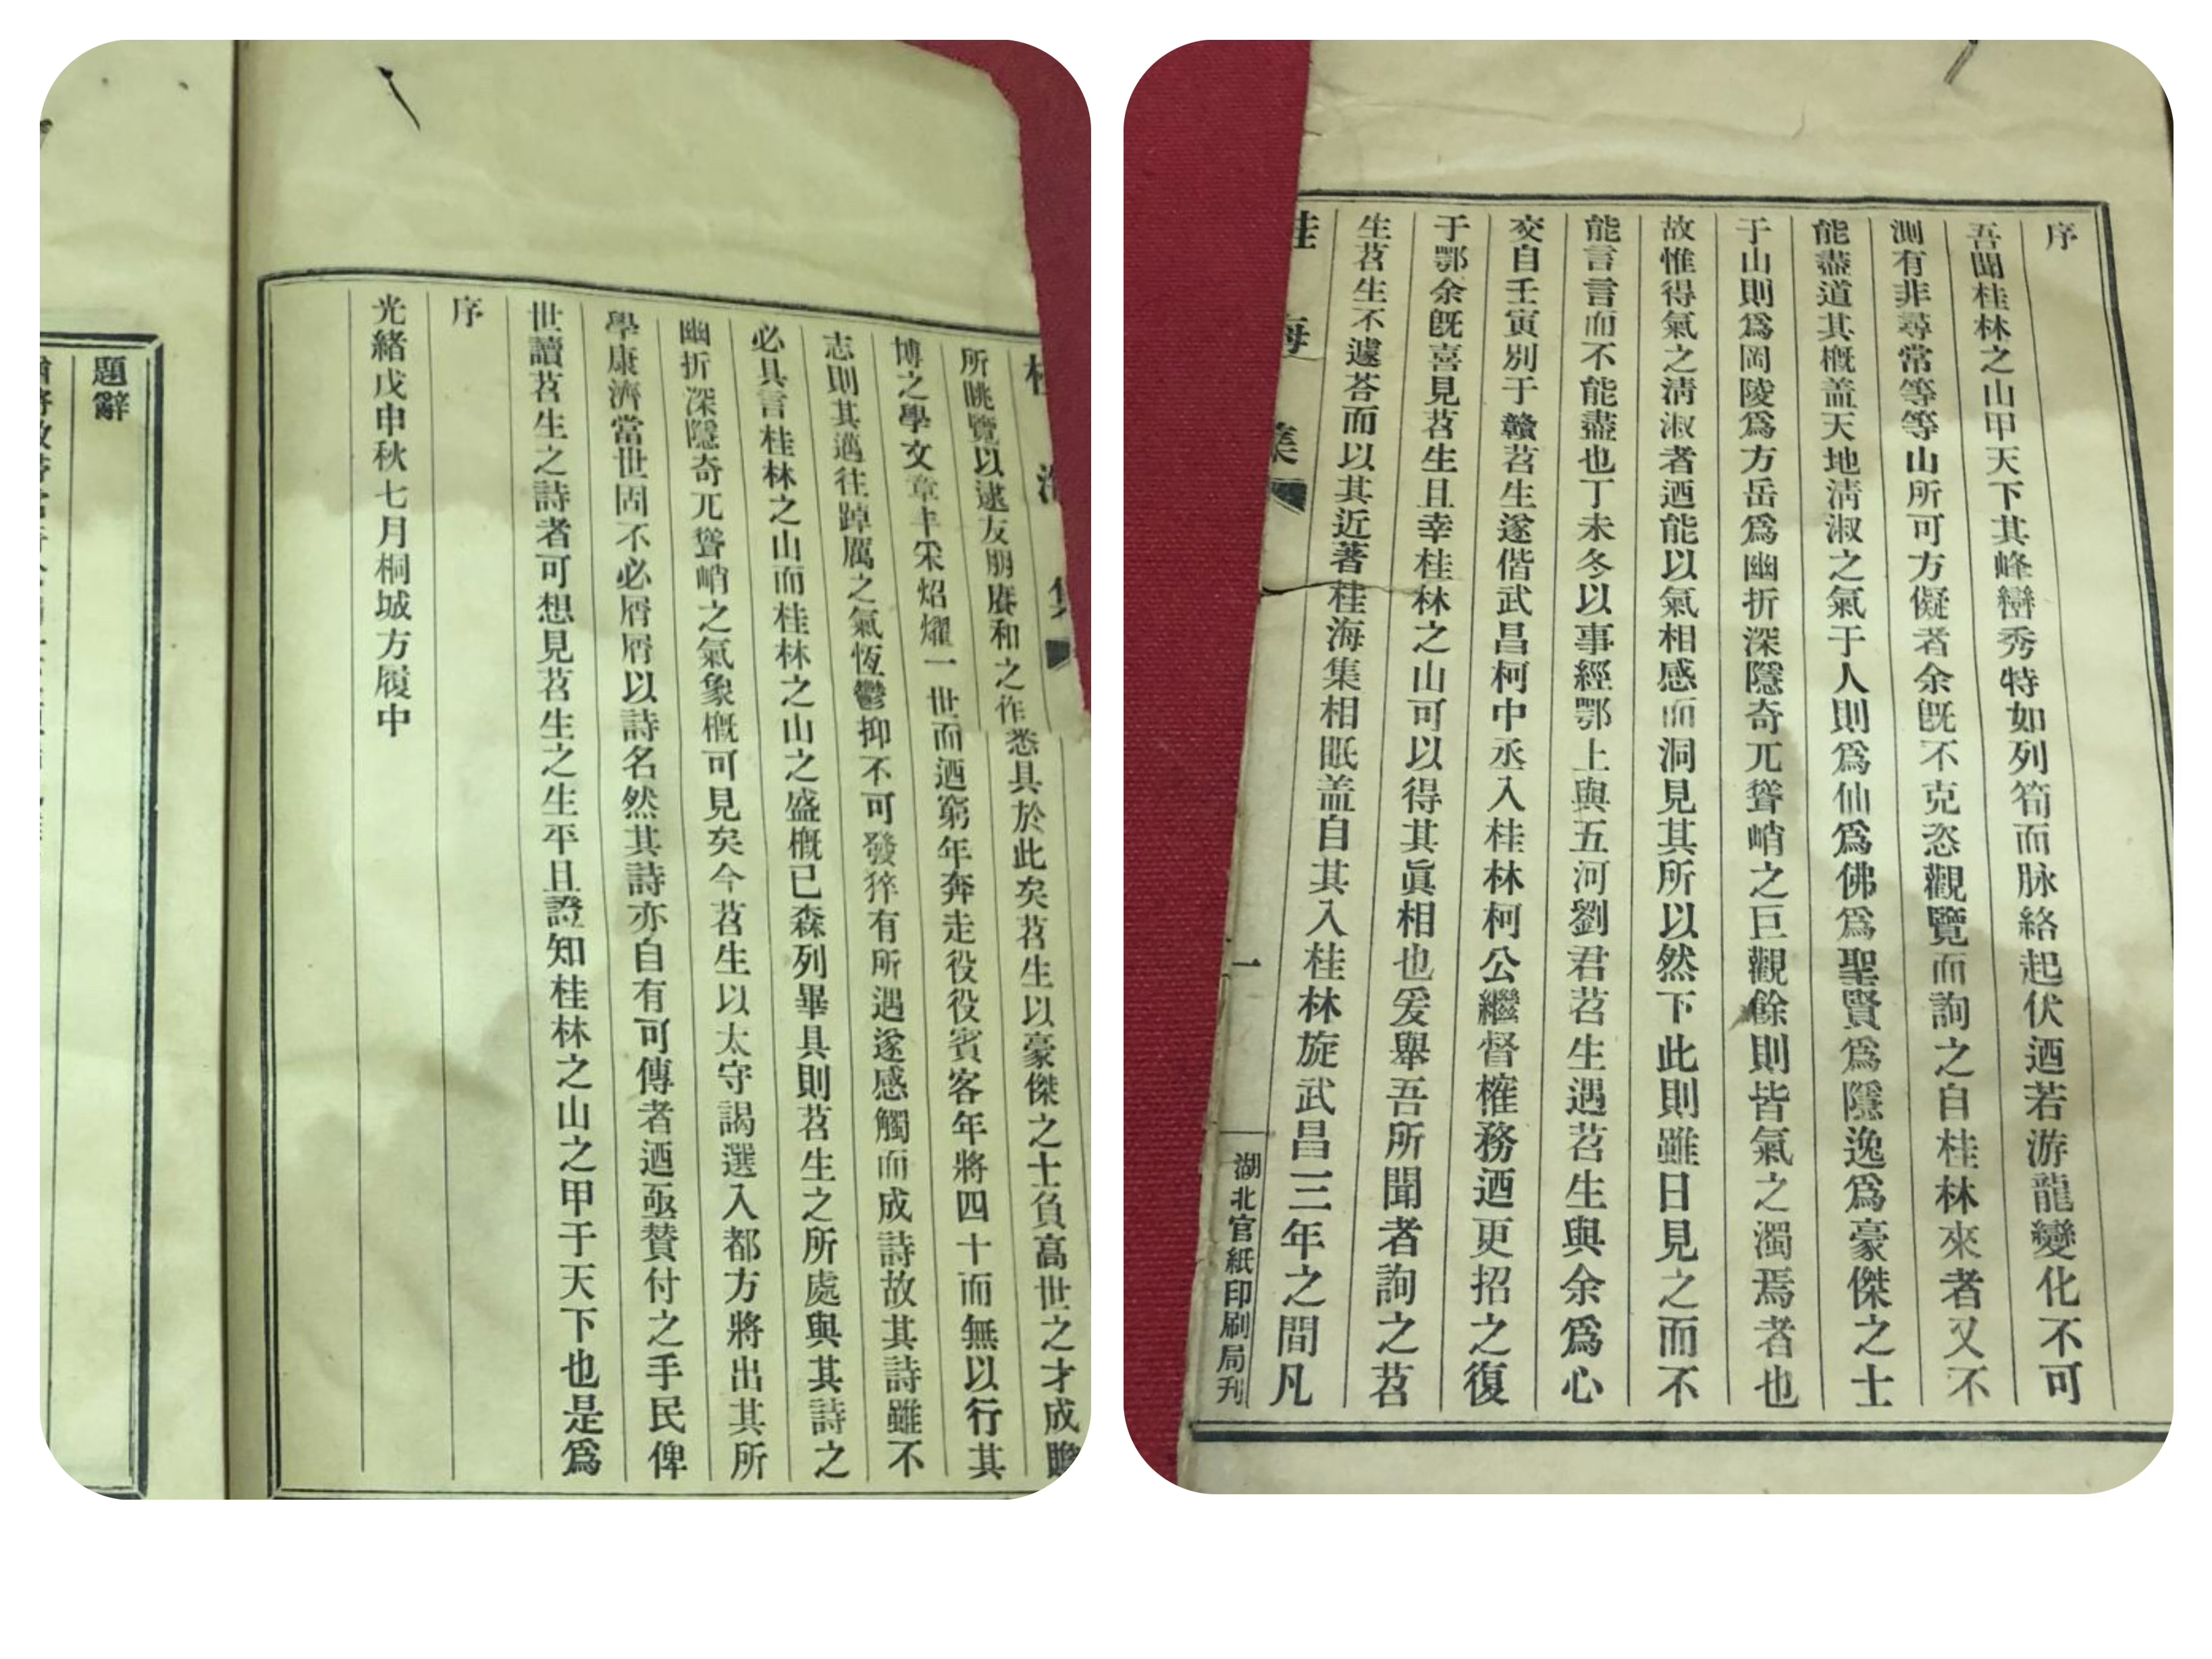 序
吾聞桂林之山甲天下其峰巒秀特如列筍而脉絡起伏迺若游龍變化不可
測有非尋常等等山所可方儗者余旣不克恣觀覽而詢之自桂林來者又不
能盡道其槪盖天地淸淑之氣于人則爲仙爲佛爲聖賢爲隱逸爲豪傑之士
于山則爲岡陵爲方岳爲幽折深隱奇兀聳峭之巨觀餘則皆氣之濁焉者也
故惟得氣之淸淑者迺能以氣相感而洞見其所以然下此則雖日見之而不
能言言而不能盡也丁未冬以事經鄂上與五河劉君苕生遇苕生與余爲心
交自壬寅別于贛苕生遂偕武昌柯中丞入桂林柯公繼督榷務迺更招之復
于鄂余旣喜見苕生且幸桂林之山可以得其眞相也爰舉吾所聞者詢之苕
生苕生不遽荅而以其近著桂海集相眂盖自其入桂林旋武昌三年之間凡
桂海集
一
湖北官紙印刷局刋
所眺覽以逮友朋賡和之作悉具於此矣苕生以豪傑之士負高世之才成贍
博之學文章丰采焰燿一世而迺窮年奔走役役賓客年將四十而無以行其
志則其邁往踔厲之氣恆鬱抑不可發猝有所遇遂感觸而成詩故其詩雖不
必具言桂林之山而桂林之山之盛槪已森列畢具則苕生之所處與其詩之
幽折深隱奇兀聳峭之氣象槪可見矣今苕生以太守謁選入都方將出其所
學康濟當世固不必屑屑以詩名然其詩亦自有可傳者迺亟贊付之手民俾
世讀苕生之詩者可想見苕生之生平且證知桂林之山之甲于天下也是爲
序
光緒戊申秋七月桐城方履中
題辭